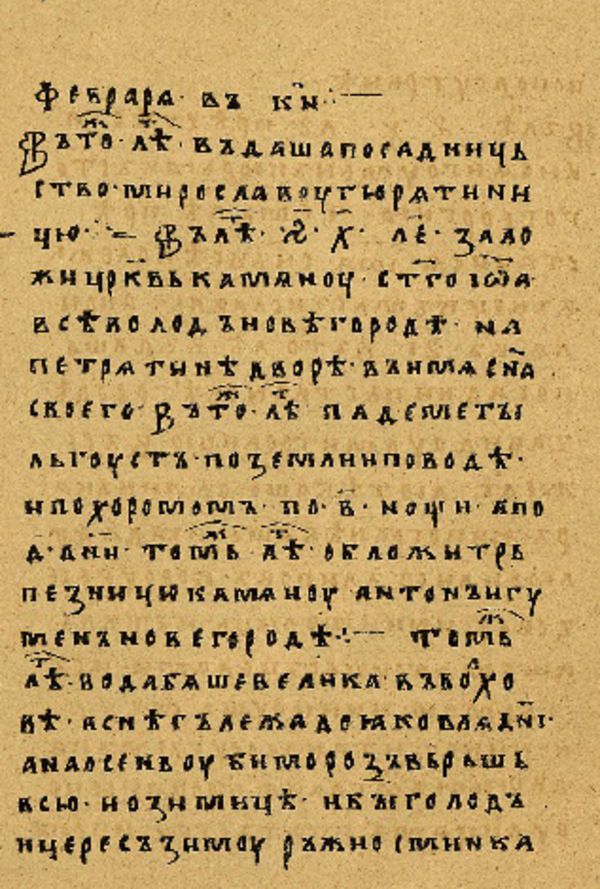 Феврарѧ· въ к҃и·:—
Въ тоⷤ· лѣⷮ· въдаша посадниць
ство· мирославоу гюрѧтини
цю·:— Въ лѣⷮ· ҂ѕ҃· х҃· л҃е· зало
жи цр҃квь камѧноу· ст҃го іѡ҃а
всѣволодъ новѣгородѣ· на
петрѧтинѣ дворѣ· въ имѧ сн҃а
своего· Въ тоⷤ· лѣⷮ падеметы
льгоустъ· по земли и по водѣ·
и по хоромомъ· по· в҃· нощи· а по
д҃· дн҃и· томьⷤ лѣⷮ· обложи трь
пезницю камѧноу антонъ игу
менъ новегородѣ·:— Томьⷤ
лѣⷮ· вода бѧше велика· въ воⷧхо
вѣ· а снѣгъ лежа до ꙗковлѧ дн҃і·
а на осень оуби морозъ вьршь
всю· и озимицѣ· и бы голодъ
и цересъ зимоу ръжи осминка